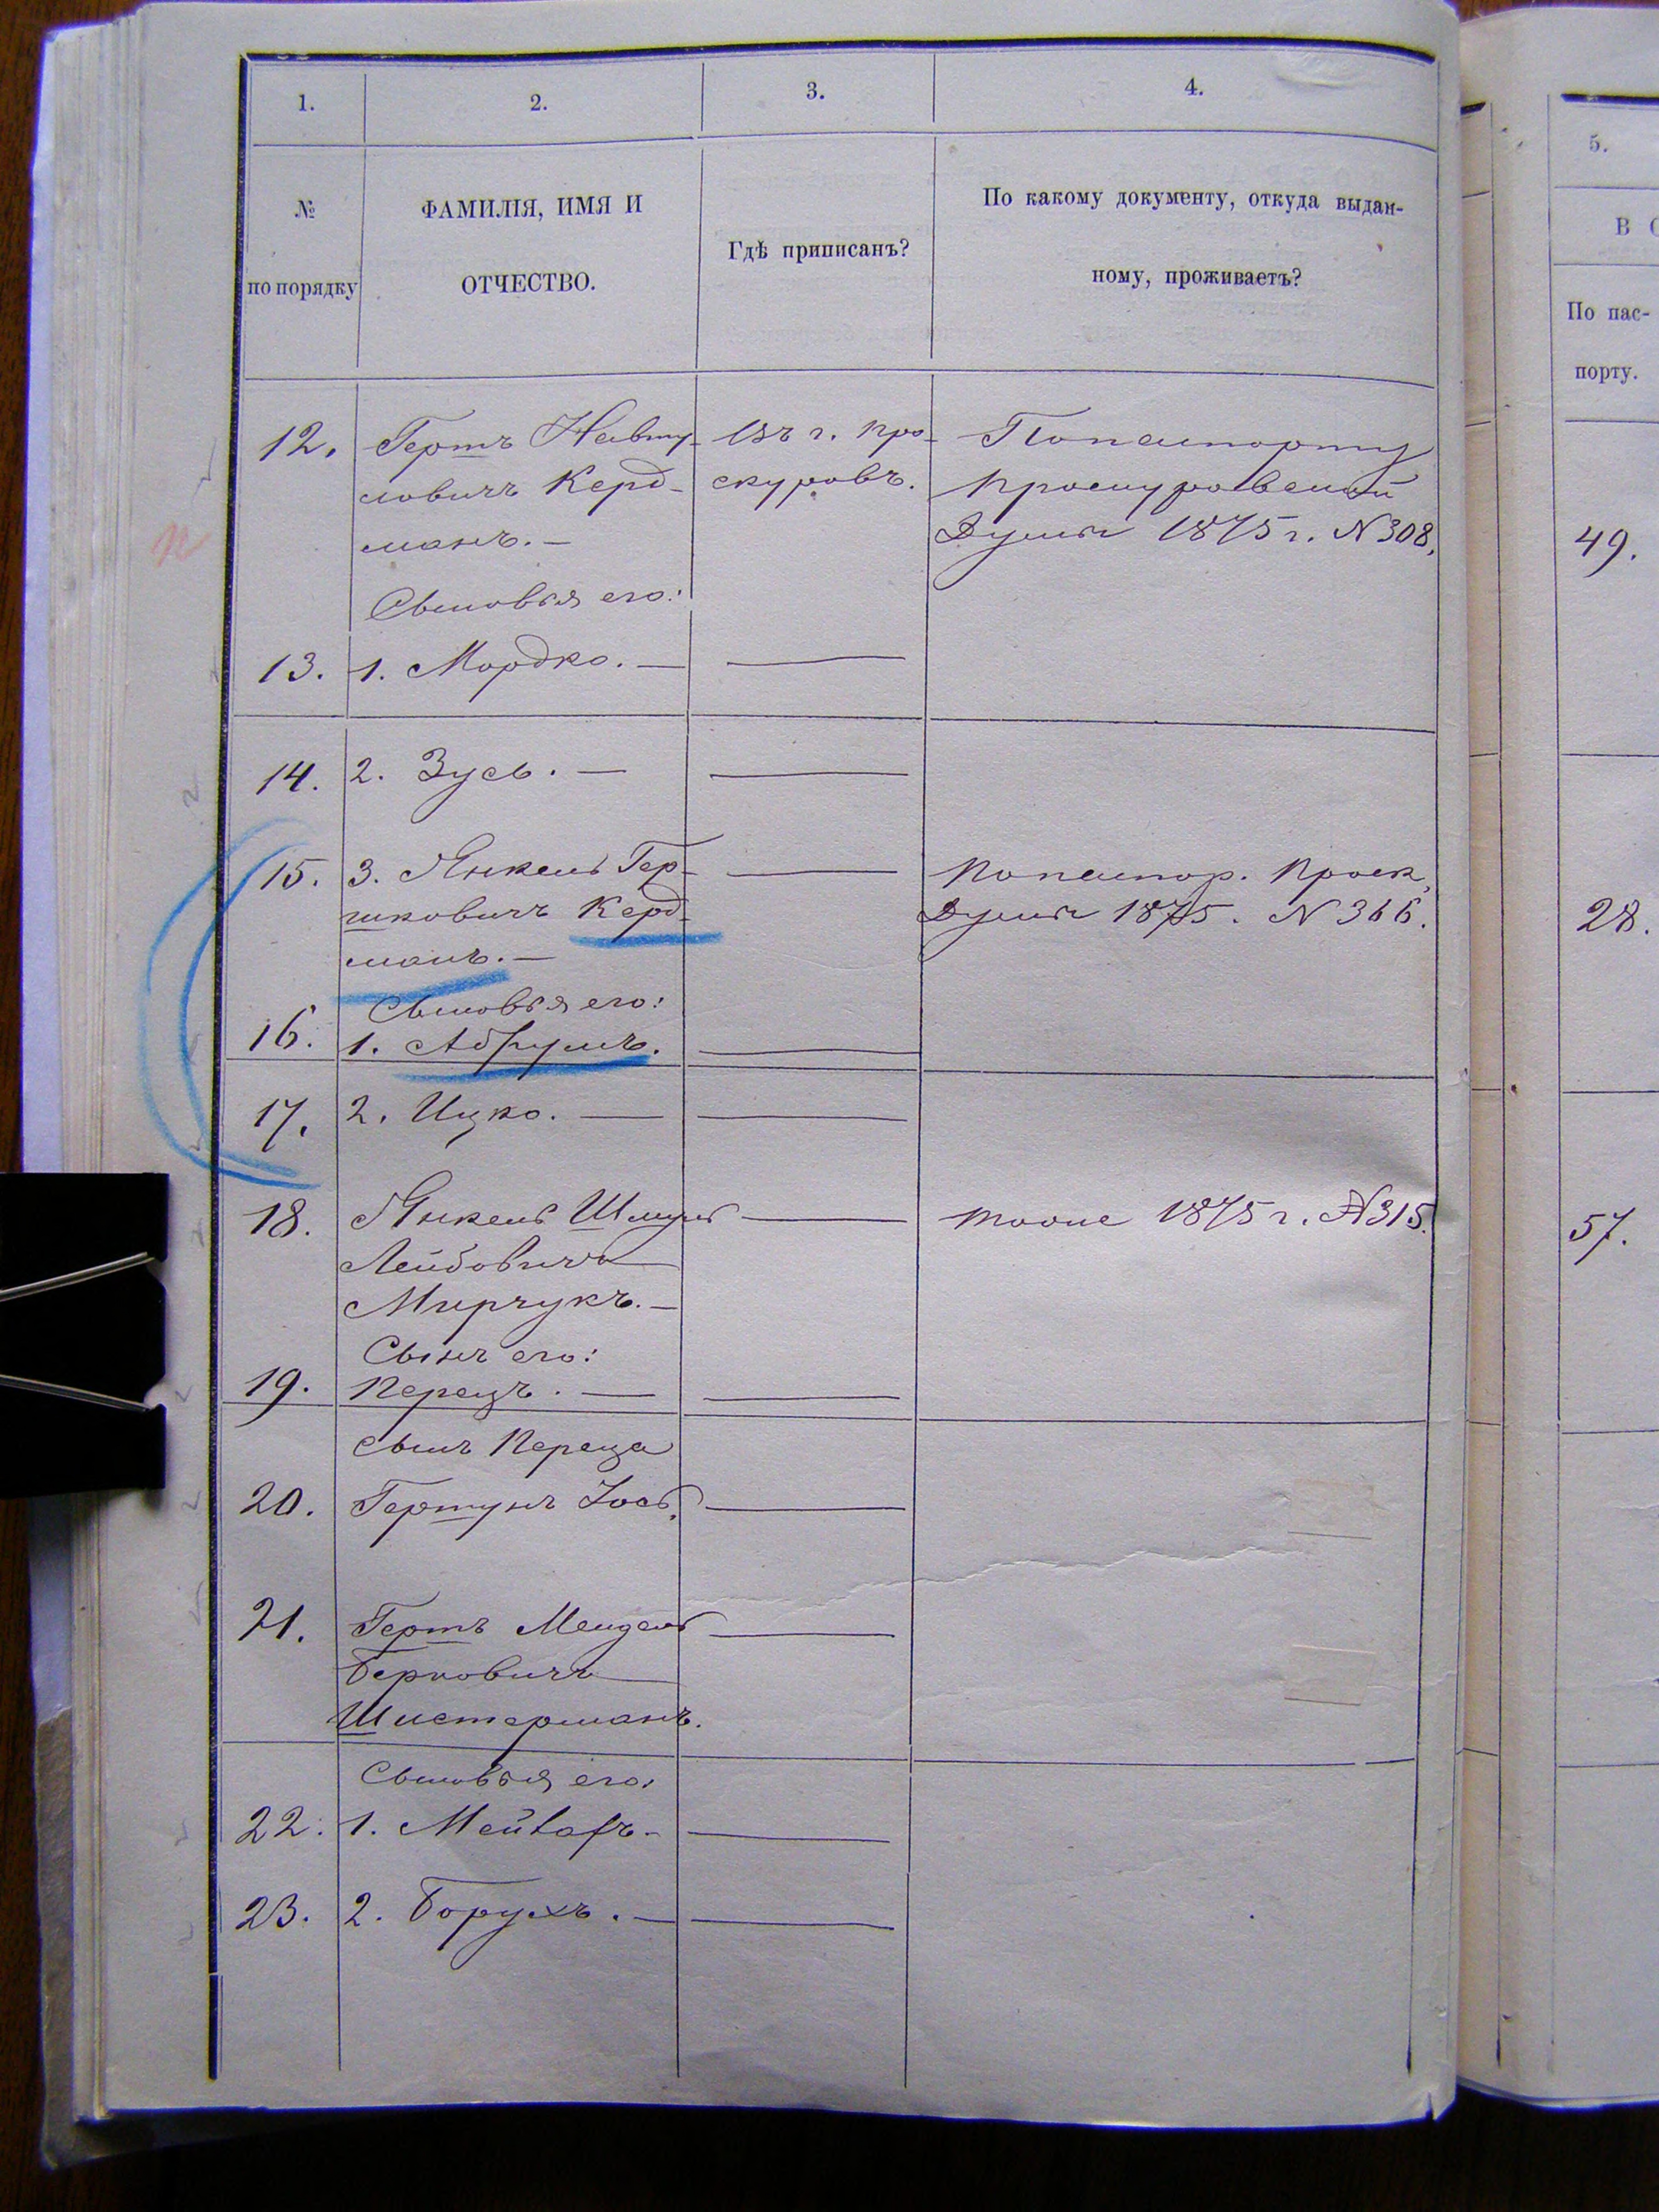 1.
2.
3.
4.
5.
№
по порядку
ФАМИЛІЯ, ИМЯ И
ОТЧЕСТВО.
Гдѣ приписанъ?
По какому документу, откуда выдан-
ному, проживаетъ?
По пас-
порту.
12. Гершъ Навту- Въ г. Про- По паспорту
ловичъ Керд- скуровъ. Проскуровской
манъ. — Думы 1875 г. N 308.
49.
Сыновья его:
13. 1. Мордко. —
14. 2. Зусь. —
15. 3. Янкель Гер- По паспор. Проск.
шковичъ Керд- Думы 1875. N 366.
28.
манъ. —
Сыновья его:
16. 1. Абрумъ.
17. 2. Ицко. —
18. Янкель Шмуль тоже 1875 г. N 315.
57.
Лейбовичъ
Мирчукъ. —
Сынъ его:
19. Перецъ. —
Сынъ Переца
20. Гершунъ Іось.
21. Гершъ Мендель
Берковичъ
Шистерманъ.
Сыновья его:
22. 1.
23. 2. Борухъ. —